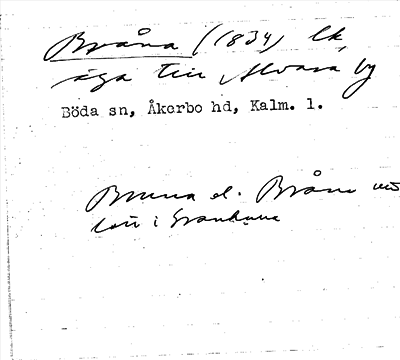 Bråna (1834) lk,
äga till Alvara by
Böda sn, Åkerbo hd, Kalm. l.
Brunna el. Bråna
i